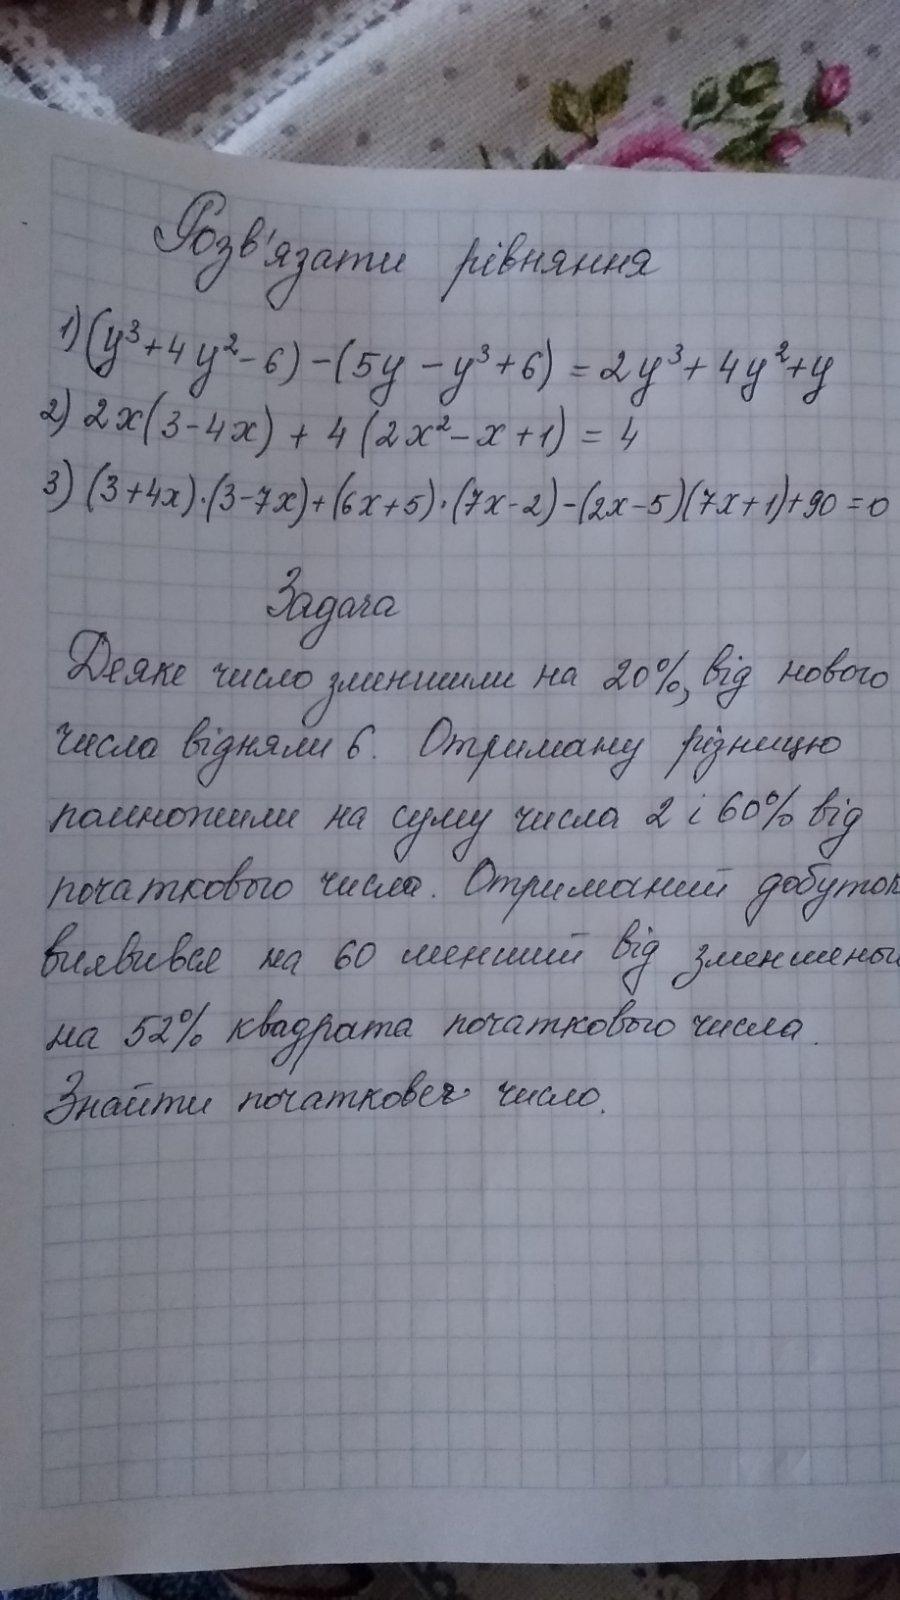 Розв'язати рівняння
1) (y³+4y²-6)-(5y-y³+6)=2y³+4y²+y
2) 2x(3-4x)+4(2x²-x+1)=4
3) (3+4x)·(3-7x)+(6x+5)·(7x-2)-(2x-5)(7x+1)+90=0
Задача
Деяке число зменшили на 20%, від нового
числа відняли 6. Отриману різницю
помножили на суму числа 2 і 60% від
початкового числа. Отриманий добуток
виявився на 60 менший від зменшеного
на 52% квадрата початкового числа.
Знайти початкове число.